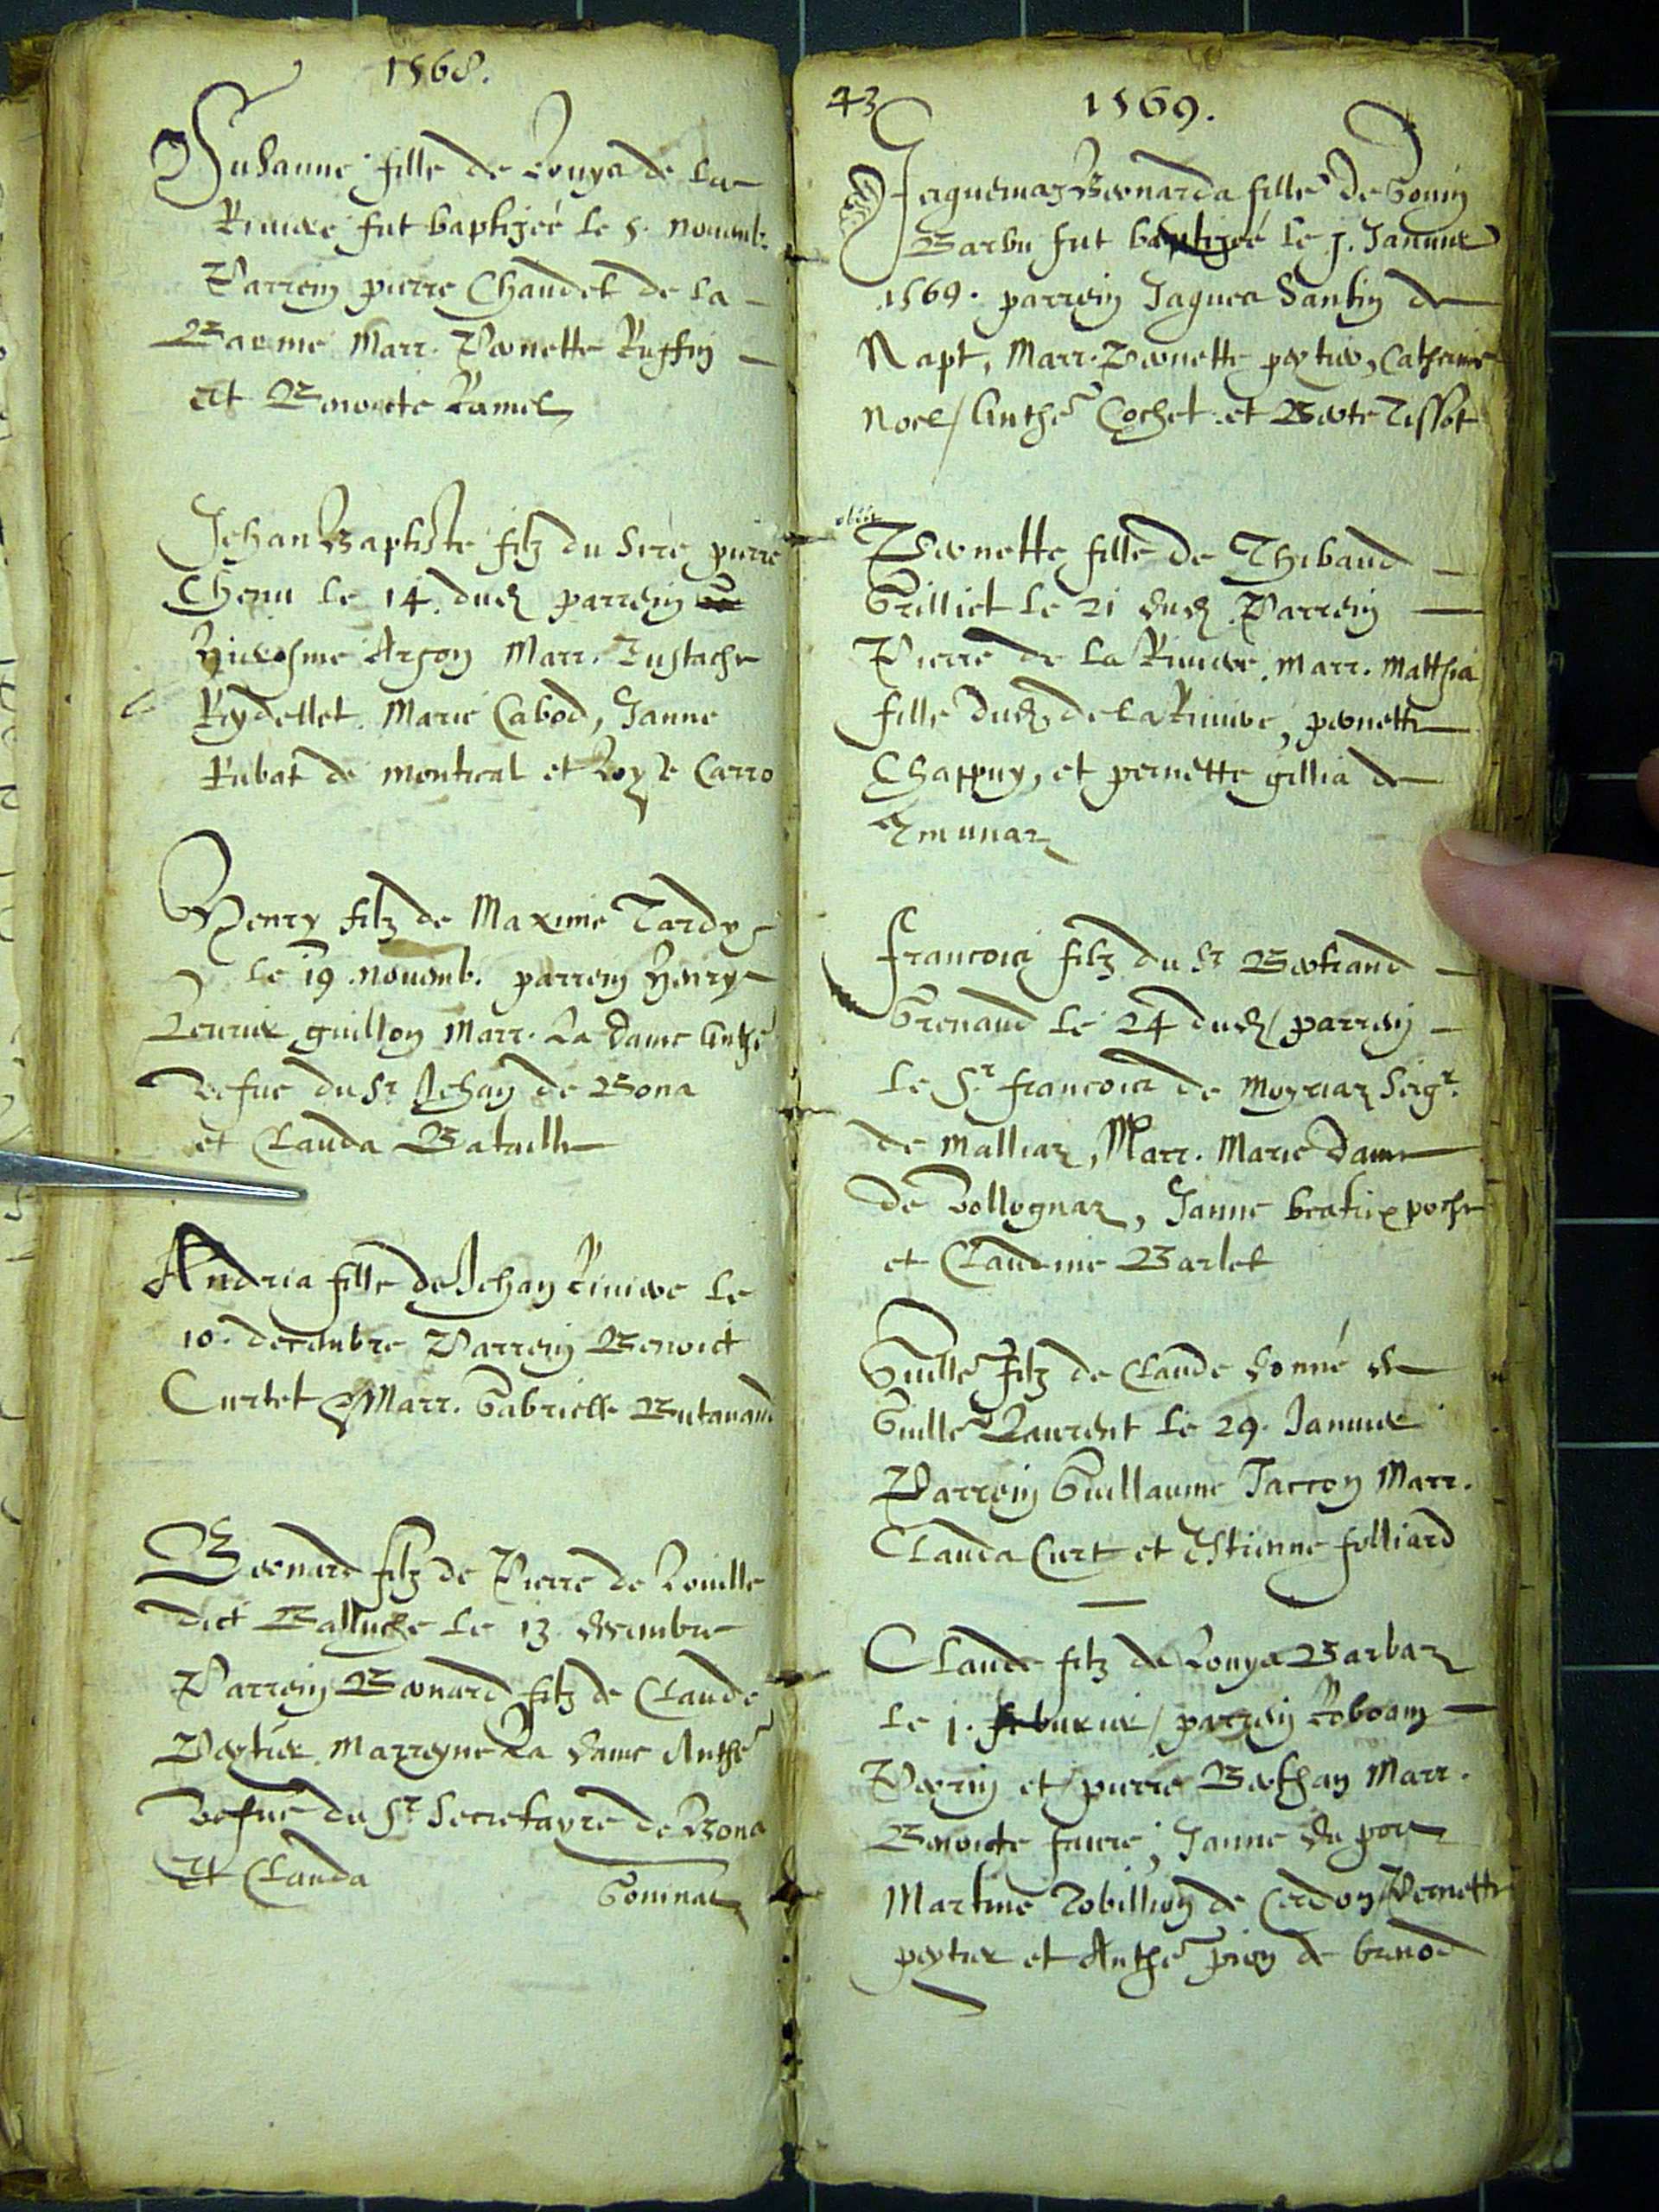 1568.
Susanne fille de Louys de la
Riuiere fut baptizee le 5. nouemb.
Parrein pierre Chaudet de la
Baume Marr. Pernette Ruffin
Et Benoicte Ramel
Jehan Baptiste filz du Sire pierre
Chenu le 14. dud parrein
Hierosme Argon Marr. Eustache
Rydellet. Marie Cabod, Janne
Rubat de montreal et Loyse Carro
Henry filz de Maxime Tardy
le 19. nouemb. parrein Henry
guillon Marr. La Dame Anthe
Vefue du Sr Jehan de Bona
et Clauda Bataille
Andria fille de Jehan Riuiere le
10. decembre Parrein Benoict
Curtet Marr. Gabrielle Butauand
Bernard filz de Pierre de Louille
dict le 13. decembre
Parrein Bernard filz de Claude
Peytier Marreyne La dame Anthe
Vefue du Sr Secretayre de Bona
Et Clauda Goninaz
43 1569.
Jaquemaz Bernarda fille de Gonin
Barbu fut baptizee le j. Januier
1569. parrein Jaques Santin de
Napt, Marr. Pernette peytier, Catherine
Noel / Anthe Cochet et Berte Tissot
obiit
Pernette fille de Thibaud
Grilliet le 21 dud Parrein
Pierre de La Riuiere. Marr. Matthia
fille dud de la Riuiere, pernette
Chappuy, et pernette gillia de
Francois filz du Sr Bertrand
Grenaud le 24 dud / parrein
le Sr francois de Moyriaz Seigr
de Malliaz, Marr. Marie dame
de Vollognaz, Janne beatrix
et Claudine Barlet
Guille filz de Claude donné de
Guille Laurent le 29. Januier
Parrein Guillaume Jaccon Marr.
Clauda Curt et Estienne folliard
Claude filz de Louys Barbaz
le j. feburier / parrein Roboam
Perrin et pierre Berthan Marr.
Benoicte faure, Janne du
Martine Tobillion de Cerdon / Pernette
peytier et Anthe de brenod